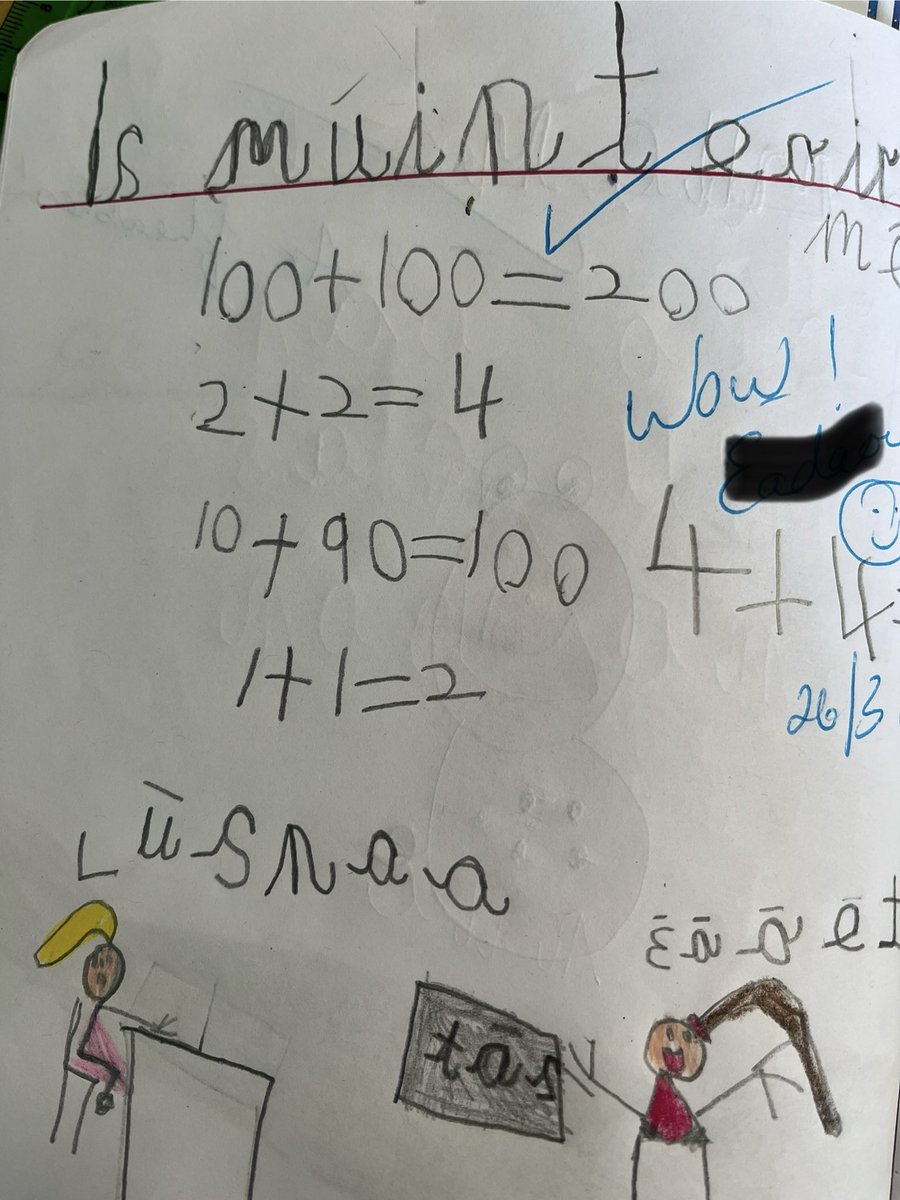 Is múinteoir
mé
100+100=200
2+2=4
Wow!
10+90=100
4+4=
1+1=2
26/3
Lūsnaa
tas